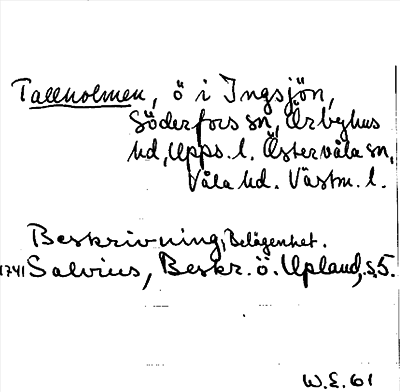 Tallholmen, ö i Ingsjön,
Söderfors sn, Örbyhus
hd, Upps. l. Östervåla sn,
Våla hd. Västm. l.
Beskrivning, Belägenhet.
1741 Salvius, Beskr. ö. Upland, s. 5.
W.E. 61